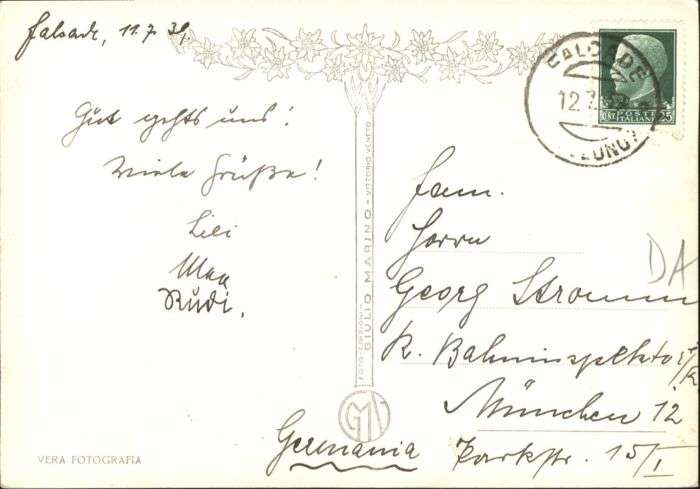 Falcade, 11.7.39,
Gut gehts uns!
Viele Grüße!
Lili
Max
Rudi.
VERA FOTOGRAFIA
FOTO-EDIZIONI GIULIO MARINO - VITTORIO VENETO
GMV
FALCADE
12.7.
POSTE ITALIANE
25
Fam.
Herrn
Georg Stromm
K. Bahninspektor
München 12
Germania Parkstr. 15/I
DA